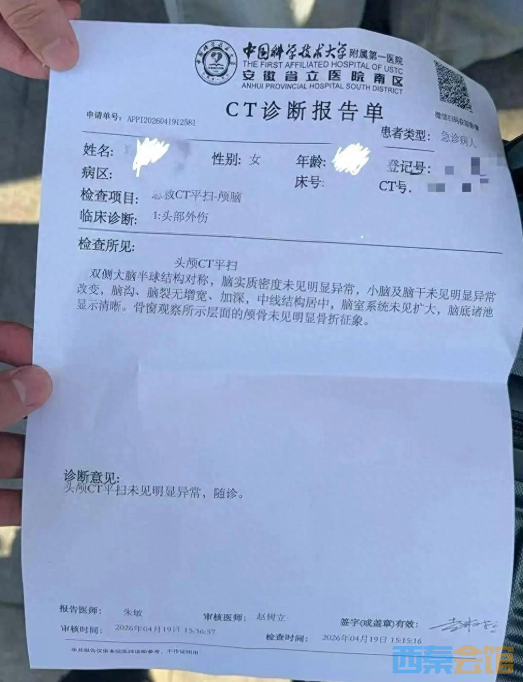 中国科学技术大学附属第一医院
THE FIRST AFFILIATED HOSPITAL OF USTC
安徽省立医院南区
ANHUI PROVINCIAL HOSPITAL SOUTH DISTRICT
CT诊断报告单
申请单号: APPI2026041912581
患者类型: 急诊病人
姓名: 性别: 女 年龄: 登记号:
病区: 床号: CT号.
检查项目: 急诊CT平扫-颅脑
临床诊断: 1:头部外伤
检查所见:
头颅CT平扫
双侧大脑半球结构对称,脑实质密度未见明显异常,小脑及脑干未见明显异常
改变,脑沟、脑裂无增宽、加深,中线结构居中,脑室系统未见扩大,脑底诸池
显示清晰。骨窗观察所示层面的颅骨未见明显骨折征象。
诊断意见:
头颅CT平扫未见明显异常,随诊。
报告医师: 朱敏 审核医师: 赵树立 签字(或盖章)有效:
审核时间: 2026年04月19日 15:36:37 检查时间: 2026年04月19日 15:15:16
西秦会馆